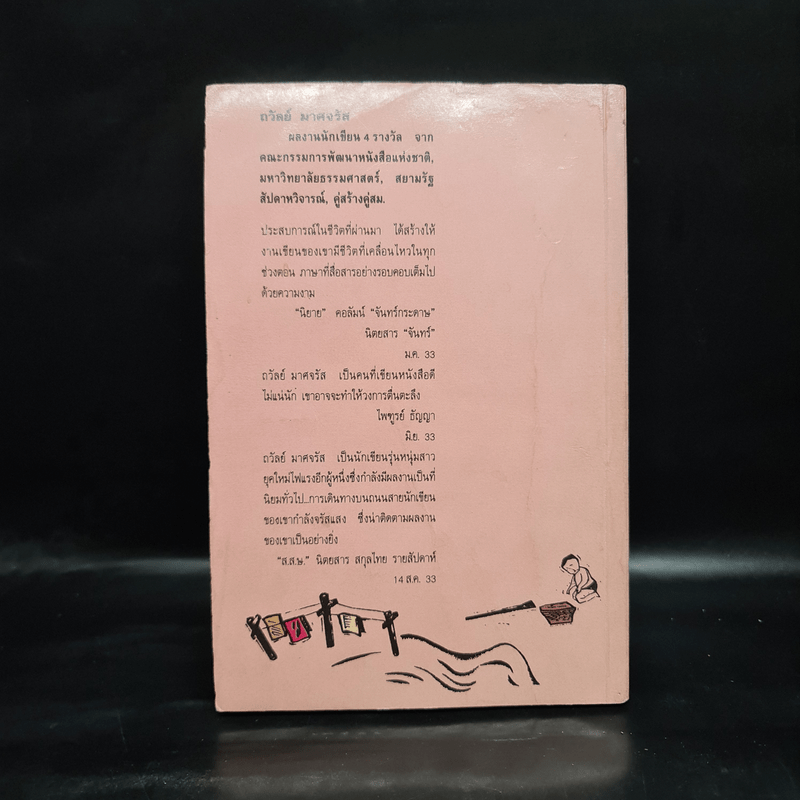 ถวัลย์ มาศจรัส
ผลงานนักเขียน 4 รางวัล จาก
คณะกรรมการพัฒนาหนังสือแห่งชาติ,
มหาวิทยาลัยธรรมศาสตร์, สยามรัฐ
สัปดาหวิจารณ์, คู่สร้างคู่สม.
ประสบการณ์ในชีวิตที่ผ่านมา ได้สร้างให้
งานเขียนของเขามีชีวิตที่เคลื่อนไหวในทุก
ช่วงตอน ภาษาที่สื่อสารอย่างรอบคอบเต็มไป
ด้วยความงาม
"นิยาย" คอลัมน์ "จันทร์กระดาษ"
นิตยสาร "จันทร์"
ม.ค. 33
ถวัลย์ มาศจรัส เป็นคนที่เขียนหนังสือดี
ไม่แน่นัก เขาอาจจะทำให้วงการตื่นตะลึง
ไพฑูรย์ ธัญญา
มิ.ย. 33
ถวัลย์ มาศจรัส เป็นนักเขียนรุ่นหนุ่มสาว
ยุคใหม่ไฟแรงอีกผู้หนึ่งซึ่งกำลังมีผลงานเป็นที่
นิยมทั่วไป...การเดินทางบนถนนสายนักเขียน
ของเขากำลังจรัสแสง ซึ่งน่าติดตามผลงาน
ของเขาเป็นอย่างยิ่ง
"ส.ส.ษ." นิตยสาร สกุลไทย รายสัปดาห์
14 ส.ค. 33